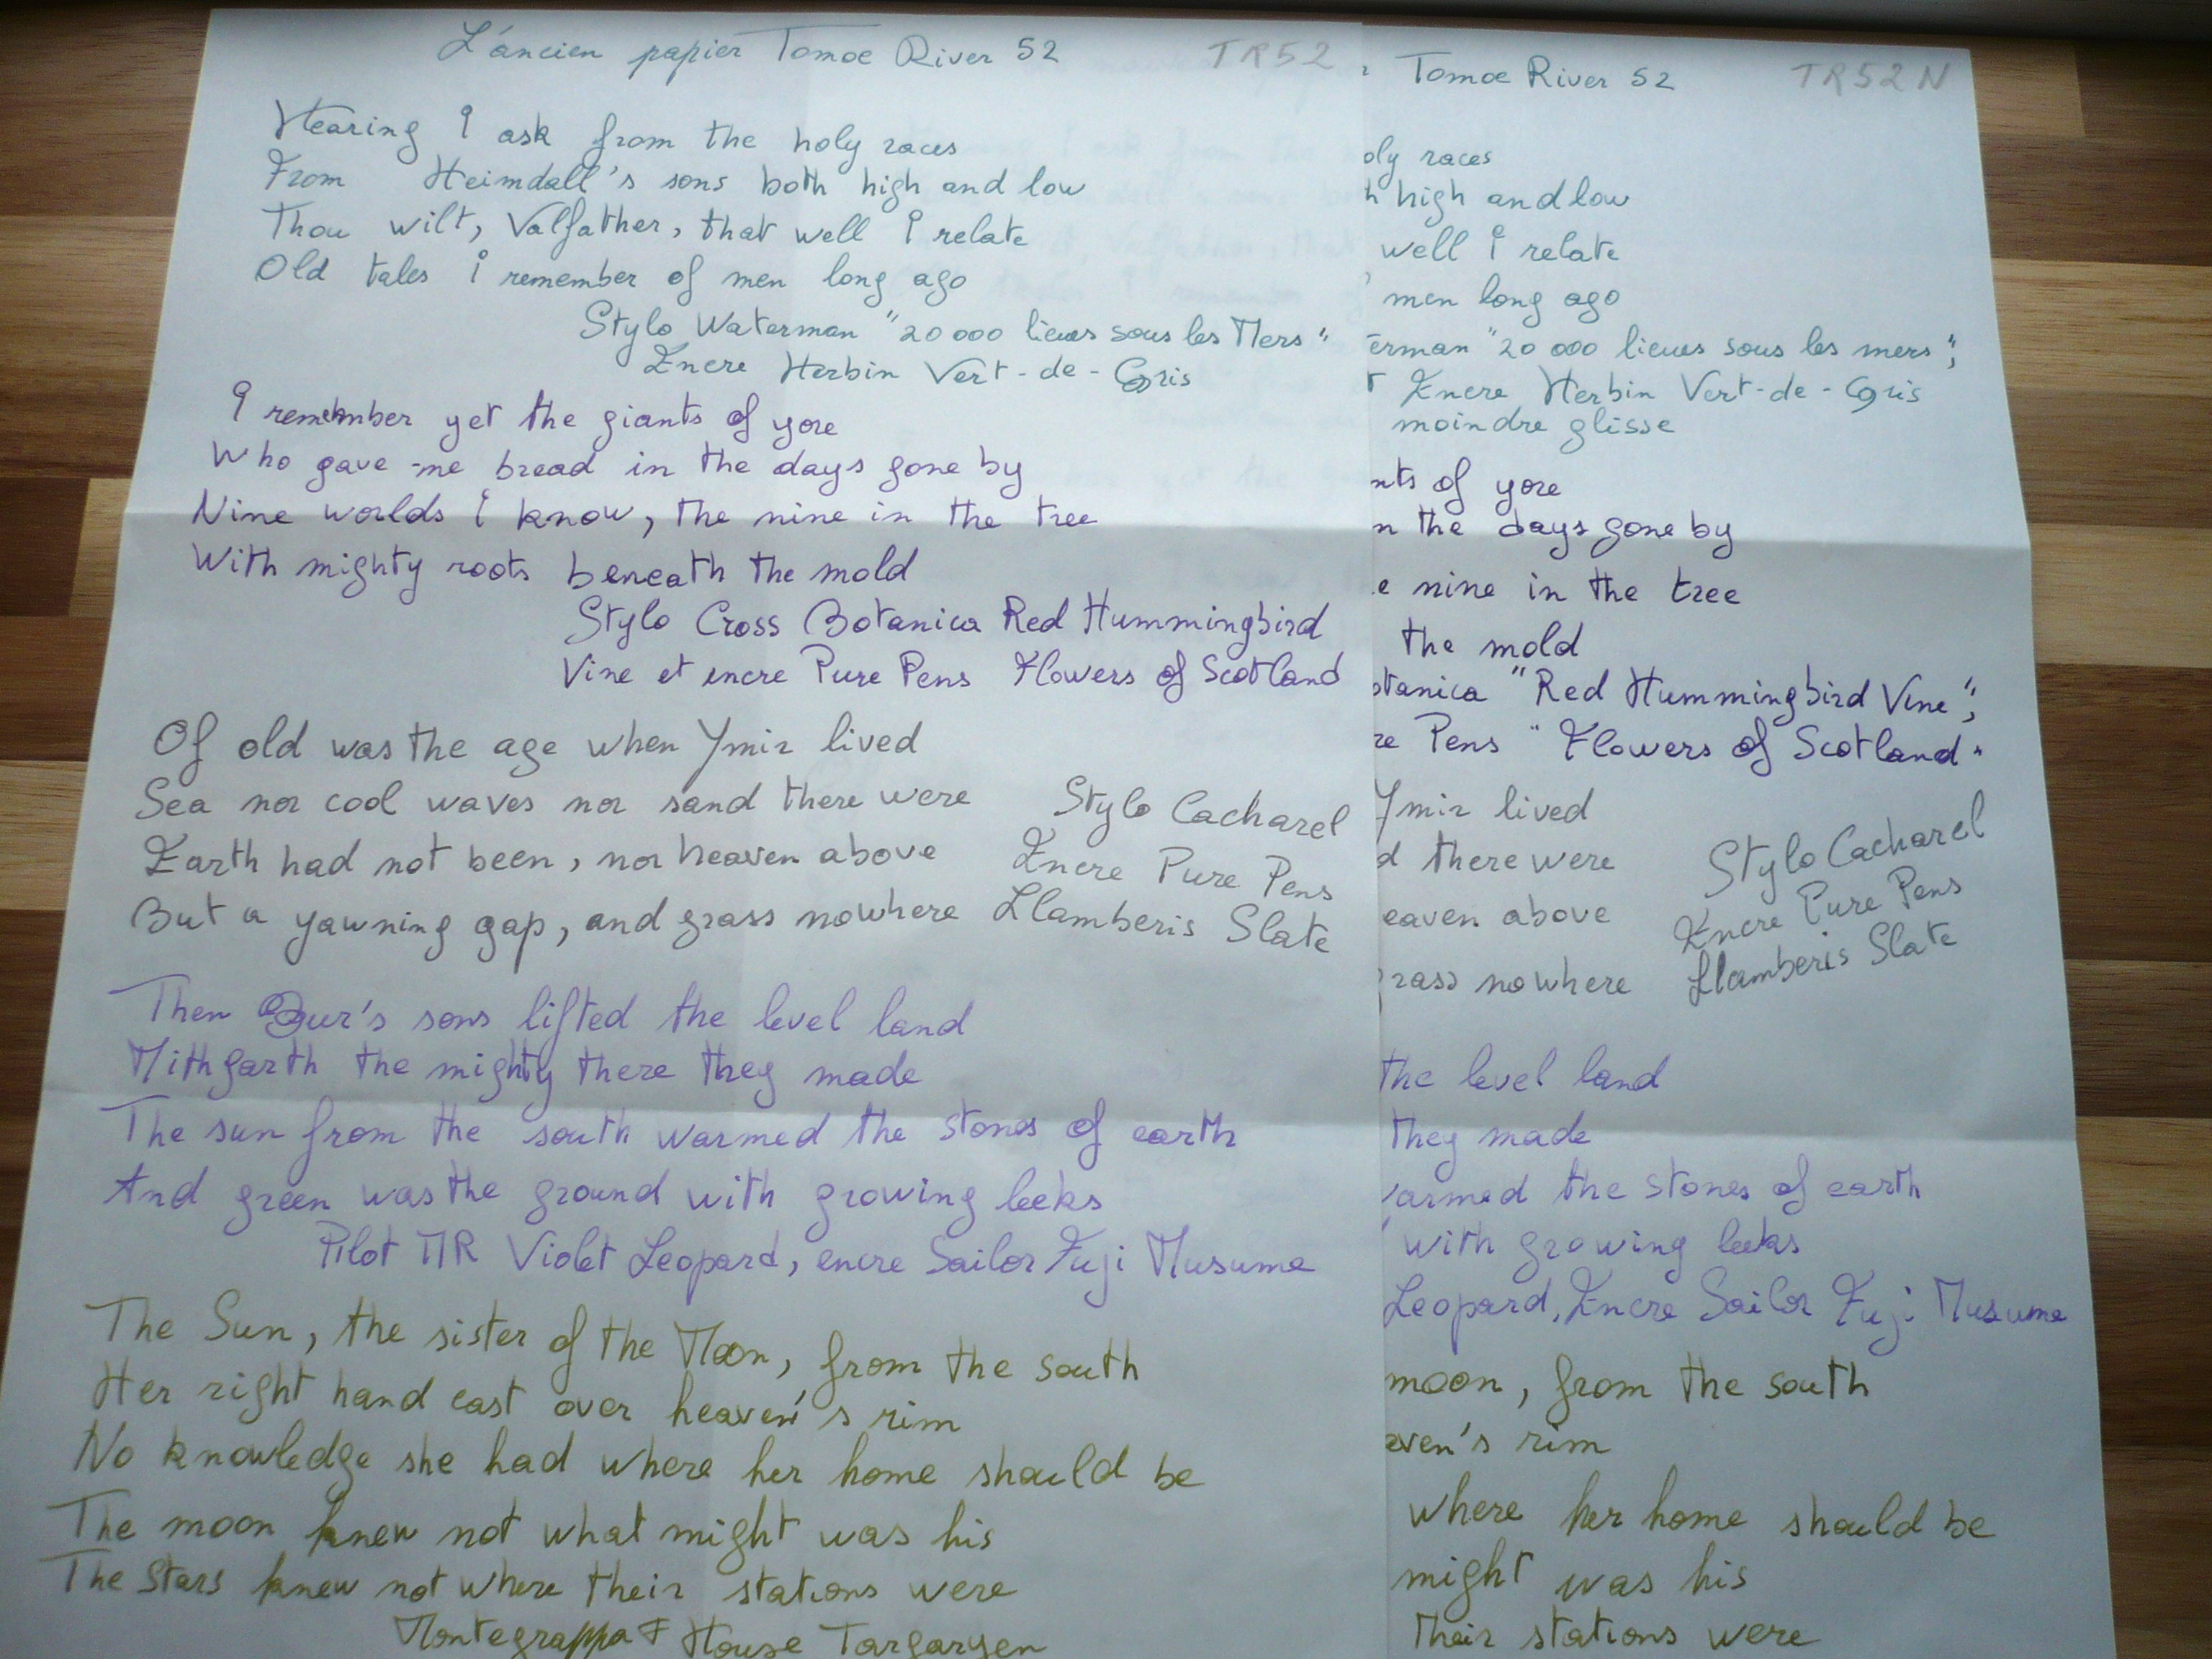 L'áncien papier Tomoe River 52 TR52
Hearing I ask from the holy races
From Heimdall's sons both high and low
Thou wilt, Valfather, that well I relate
Old tales I remember of men long ago
Stylo Waterman "20 000 lieues sous les Mers"
Encre Herbin Vert-de-Gris
I remember yet the giants of yore
Who gave me bread in the days gone by
Nine worlds I know, the nine in the tree
With mighty roots beneath the mold
Stylo Cross Botanica Red Hummingbird
Vine et encre Pure Pens Flowers of Scotland
Of old was the age when Ymir lived
Sea nor cool waves nor sand there were
Earth had not been, nor heaven above
But a yawning gap, and grass nowhere
Stylo Cacharel
Encre Pure Pens
Llamberis Slate
Then Bur's sons lifted the level land
Mithgarth the mighty there they made
The sun from the south warmed the stones of earth
And green was the ground with growing leeks
Pilot MR Violet Leopard, encre Sailor Fuji Musume
The Sun, the sister of the Moon, from the south
Her right hand cast over heaven's rim
No knowledge she had where her home should be
The moon knew not what might was his
The stars knew not where their stations were
Montegrappa F House Targaryen
Tomoe River 52 TR52N
oly races
h high and low
well I relate
men long ago
erman "20 000 lieues sous les mers",
Encre Herbin Vert-de-Gris
moindre glisse
nts of yore
n the days gone by
e nine in the tree
the mold
otanica "Red Hummingbird Vine",
re Pens "Flowers of Scotland"
Ymir lived
d there were
eaven above
rass nowhere
Stylo Cacharel
Encre Pure Pens
Llamberis Slate
the level land
they made
armed the stones of earth
with growing leeks
Leopard, Encre Sailor Fuji Musume
moon, from the south
aven's rim
where her home should be
might was his
their stations were